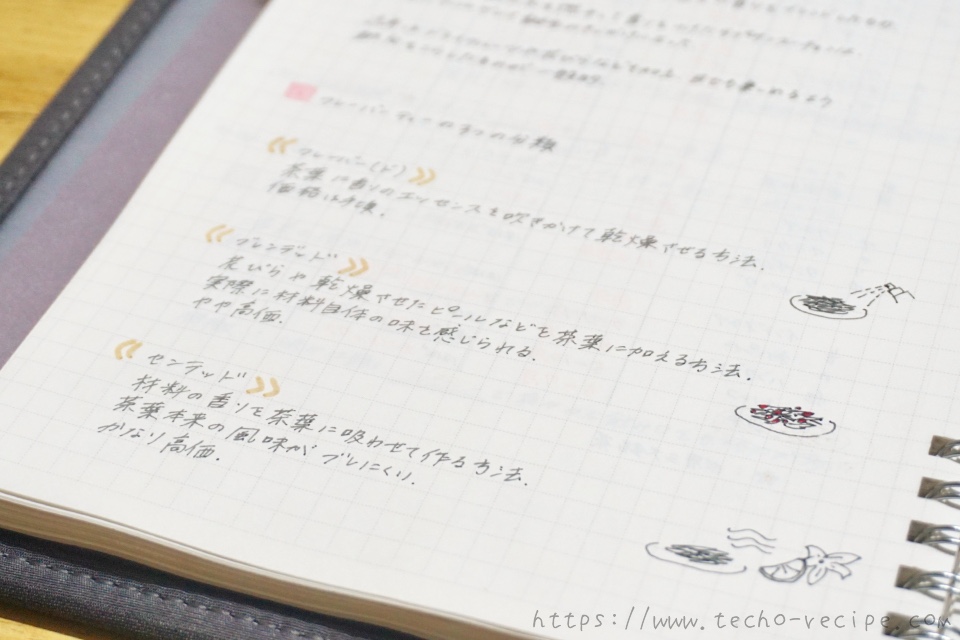 フレーバーティーの3つの分類
《フレーバー(ド)》
茶葉に香りのエッセンスを吹きかけて乾燥させる方法。
価格は手頃。
《ブレンデッド》
花びらや乾燥させたピールなどを茶葉に加える方法。
実際に材料自体の味を感じられる。
やや高価。
《センテッド》
材料の香りを茶葉に吸わせて作る方法。
茶葉本来の風味がブレにくい。
かなり高価。
https://www.techo-recipe.com